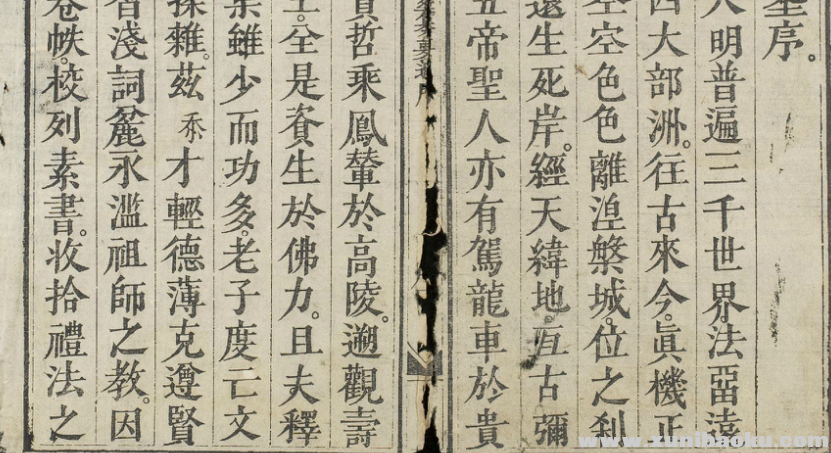 序。
大明普遍三千世界法畱遠
四大部洲。往古來今。真機正
空空色色離湼槃城。位之剎
還生死岸。經天緯地。亙古彌
五帝聖人亦有駕龍車於貴
序
賓哲乘鳳輦於高陵。遡觀壽
生。全是資生於佛力。且夫釋
雖少而功多。老子度亡文
採雜。茲忝才輕德薄克遵賢
智淺詞麄永濫祖師之教。因
卷帙。校列素書。收拾禮法之
www.xunibaoku.com